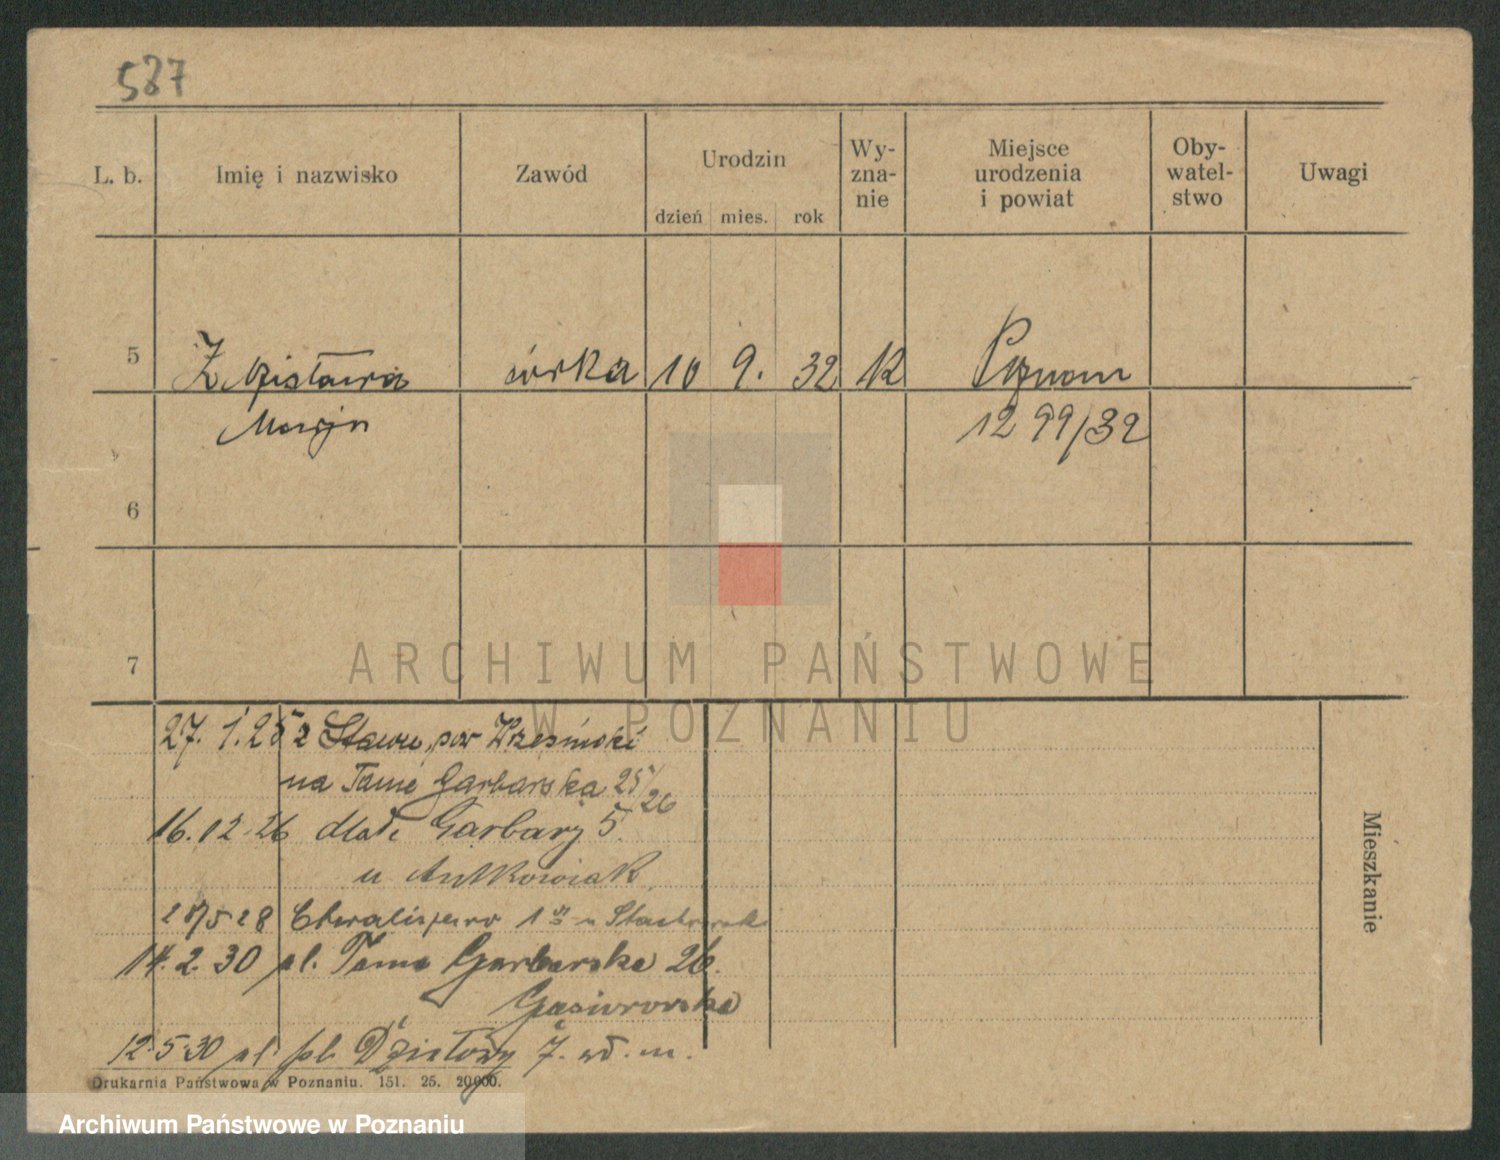 587
L. b. Imię i nazwisko Zawód Urodzin dzień mies. rok Wy-zna-nie Miejsce urodzenia i powiat Oby-watel-stwo Uwagi
5 Zdzisława córka 10 9. 32 rk Poznań
Maryja 1299/32
6
7
ARCHIWUM PAŃSTWOWE
W POZNANIU
27. 1. 25 z Stawu, pow Wrzesiński
na Tamę Garbarską 25/26
16. 12. 26 Garbary 5.
u Antkowiak
28 5 28 Chwaliszewo u
14. 2. 30 pl. Tama Garbarska 26.
Gąsiorowska
12. 5. 30 pl. Działowy 7.
Mieszkanie
Drukarnia Państwowa w Poznaniu. 151. 25. 20000.
Archiwum Państwowe w Poznaniu